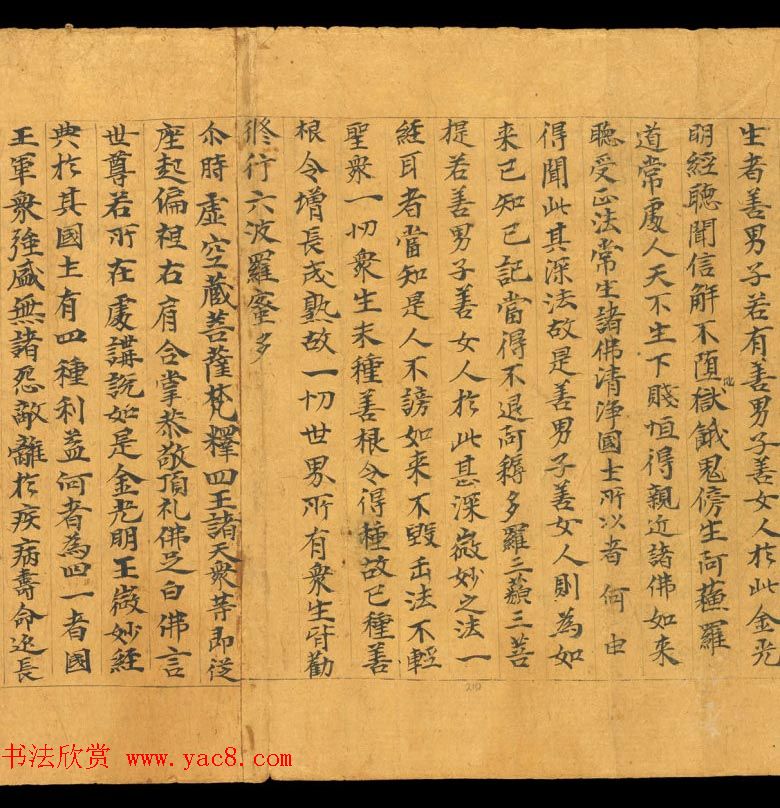 生者善男子若有善男子善女人扵此金光
明經聽聞信解不墮地獄餓鬼傍生阿蘓羅
道常處人天不生下賤恒得親近諸佛如來
聽受正法常生諸佛清淨國土所以者何由
得聞此甚深法故是善男子善女人則為如
来已知已記當得不退阿耨多羅三藐三菩
提若善男子善女人扵此甚深微妙之法一
經耳者當知是人不謗如来不毀正法不輕
聖衆一切衆生未種善根令得種故已種善
根令增長成熟故一切世界所有衆生皆勸
修行六波羅蜜多
尒時虛空藏菩薩梵釋四王諸天衆等即従
座起偏袒右肩合掌恭敬頂礼佛足白佛言
世尊若所在處講說如是金光明王微妙經
典扵其國土有四種利益何者為四一者國
王軍衆強盛無諸怨敵離扵疾病壽命延長
210
书法欣赏 www.yac8.com